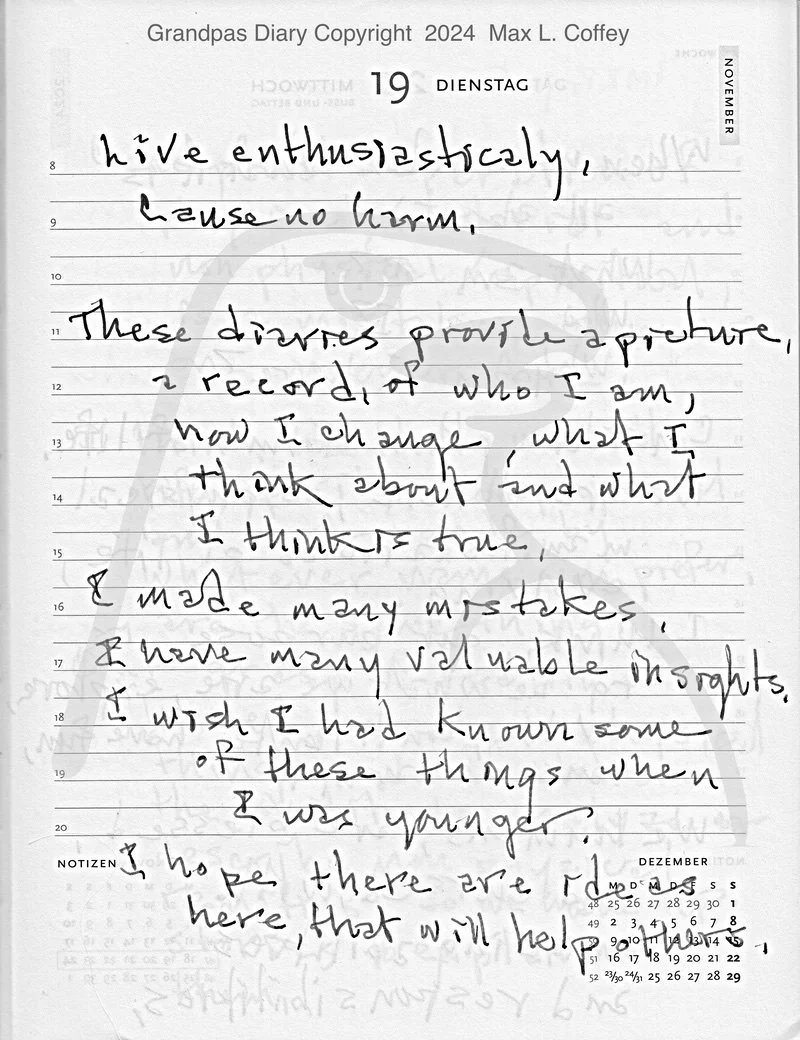 Grandpas Diary Copyright 2024 Max L. Coffey
19 DIENSTAG
NOVEMBER
8 Live enthusiasticaly,
9 Cause no harm.
10
11 These diaries provide a picture,
12 a record, of who I am,
13 how I change, what I
14 think about and what
15 I think is true.
16 I made many mistakes.
17 I have many valuable insights.
18 I wish I had known some
19 of these things when
20 I was younger.
NOTIZEN I hope there are ideas
here, that will help others.
DEZEMBER
M D M D F S S
48 25 26 27 28 29 30 1
49 2 3 4 5 6 7 8
9 10 11 12 13 14 15
51 16 17 18 19 20 21 22
52 23/30 24/31 25 26 27 28 29